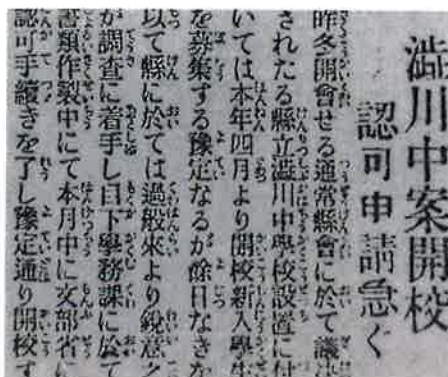 澁川中案開校
認可申請急ぐ
昨冬開會せる通常縣會に於て議決
されたる縣立澁川中學校設置に付
いては本年四月より開校新入學生
を募集する豫定なるが餘日なきを
以て縣に於ては過般來より鋭意之
が調査に着手し目下學務課に於て
書類作製中にて本月中に文部省に
認可手續きを了し豫定通り開校す